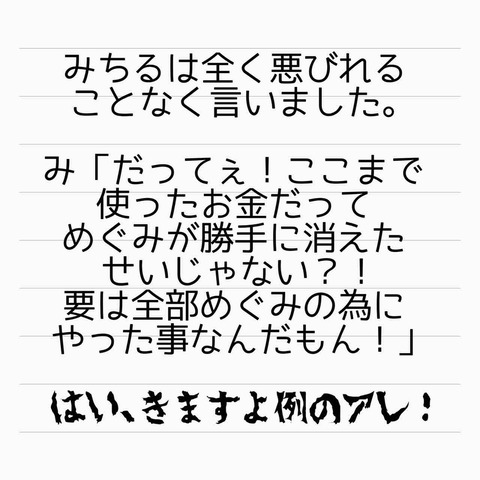 みちるは全く悪びれる
ことなく言いました。
み「だってぇ！ここまで
使ったお金だって
めぐみが勝手に消えた
せいじゃない？！
要は全部めぐみの為に
やった事なんだもん！」
はい、きますよ例のアレ！